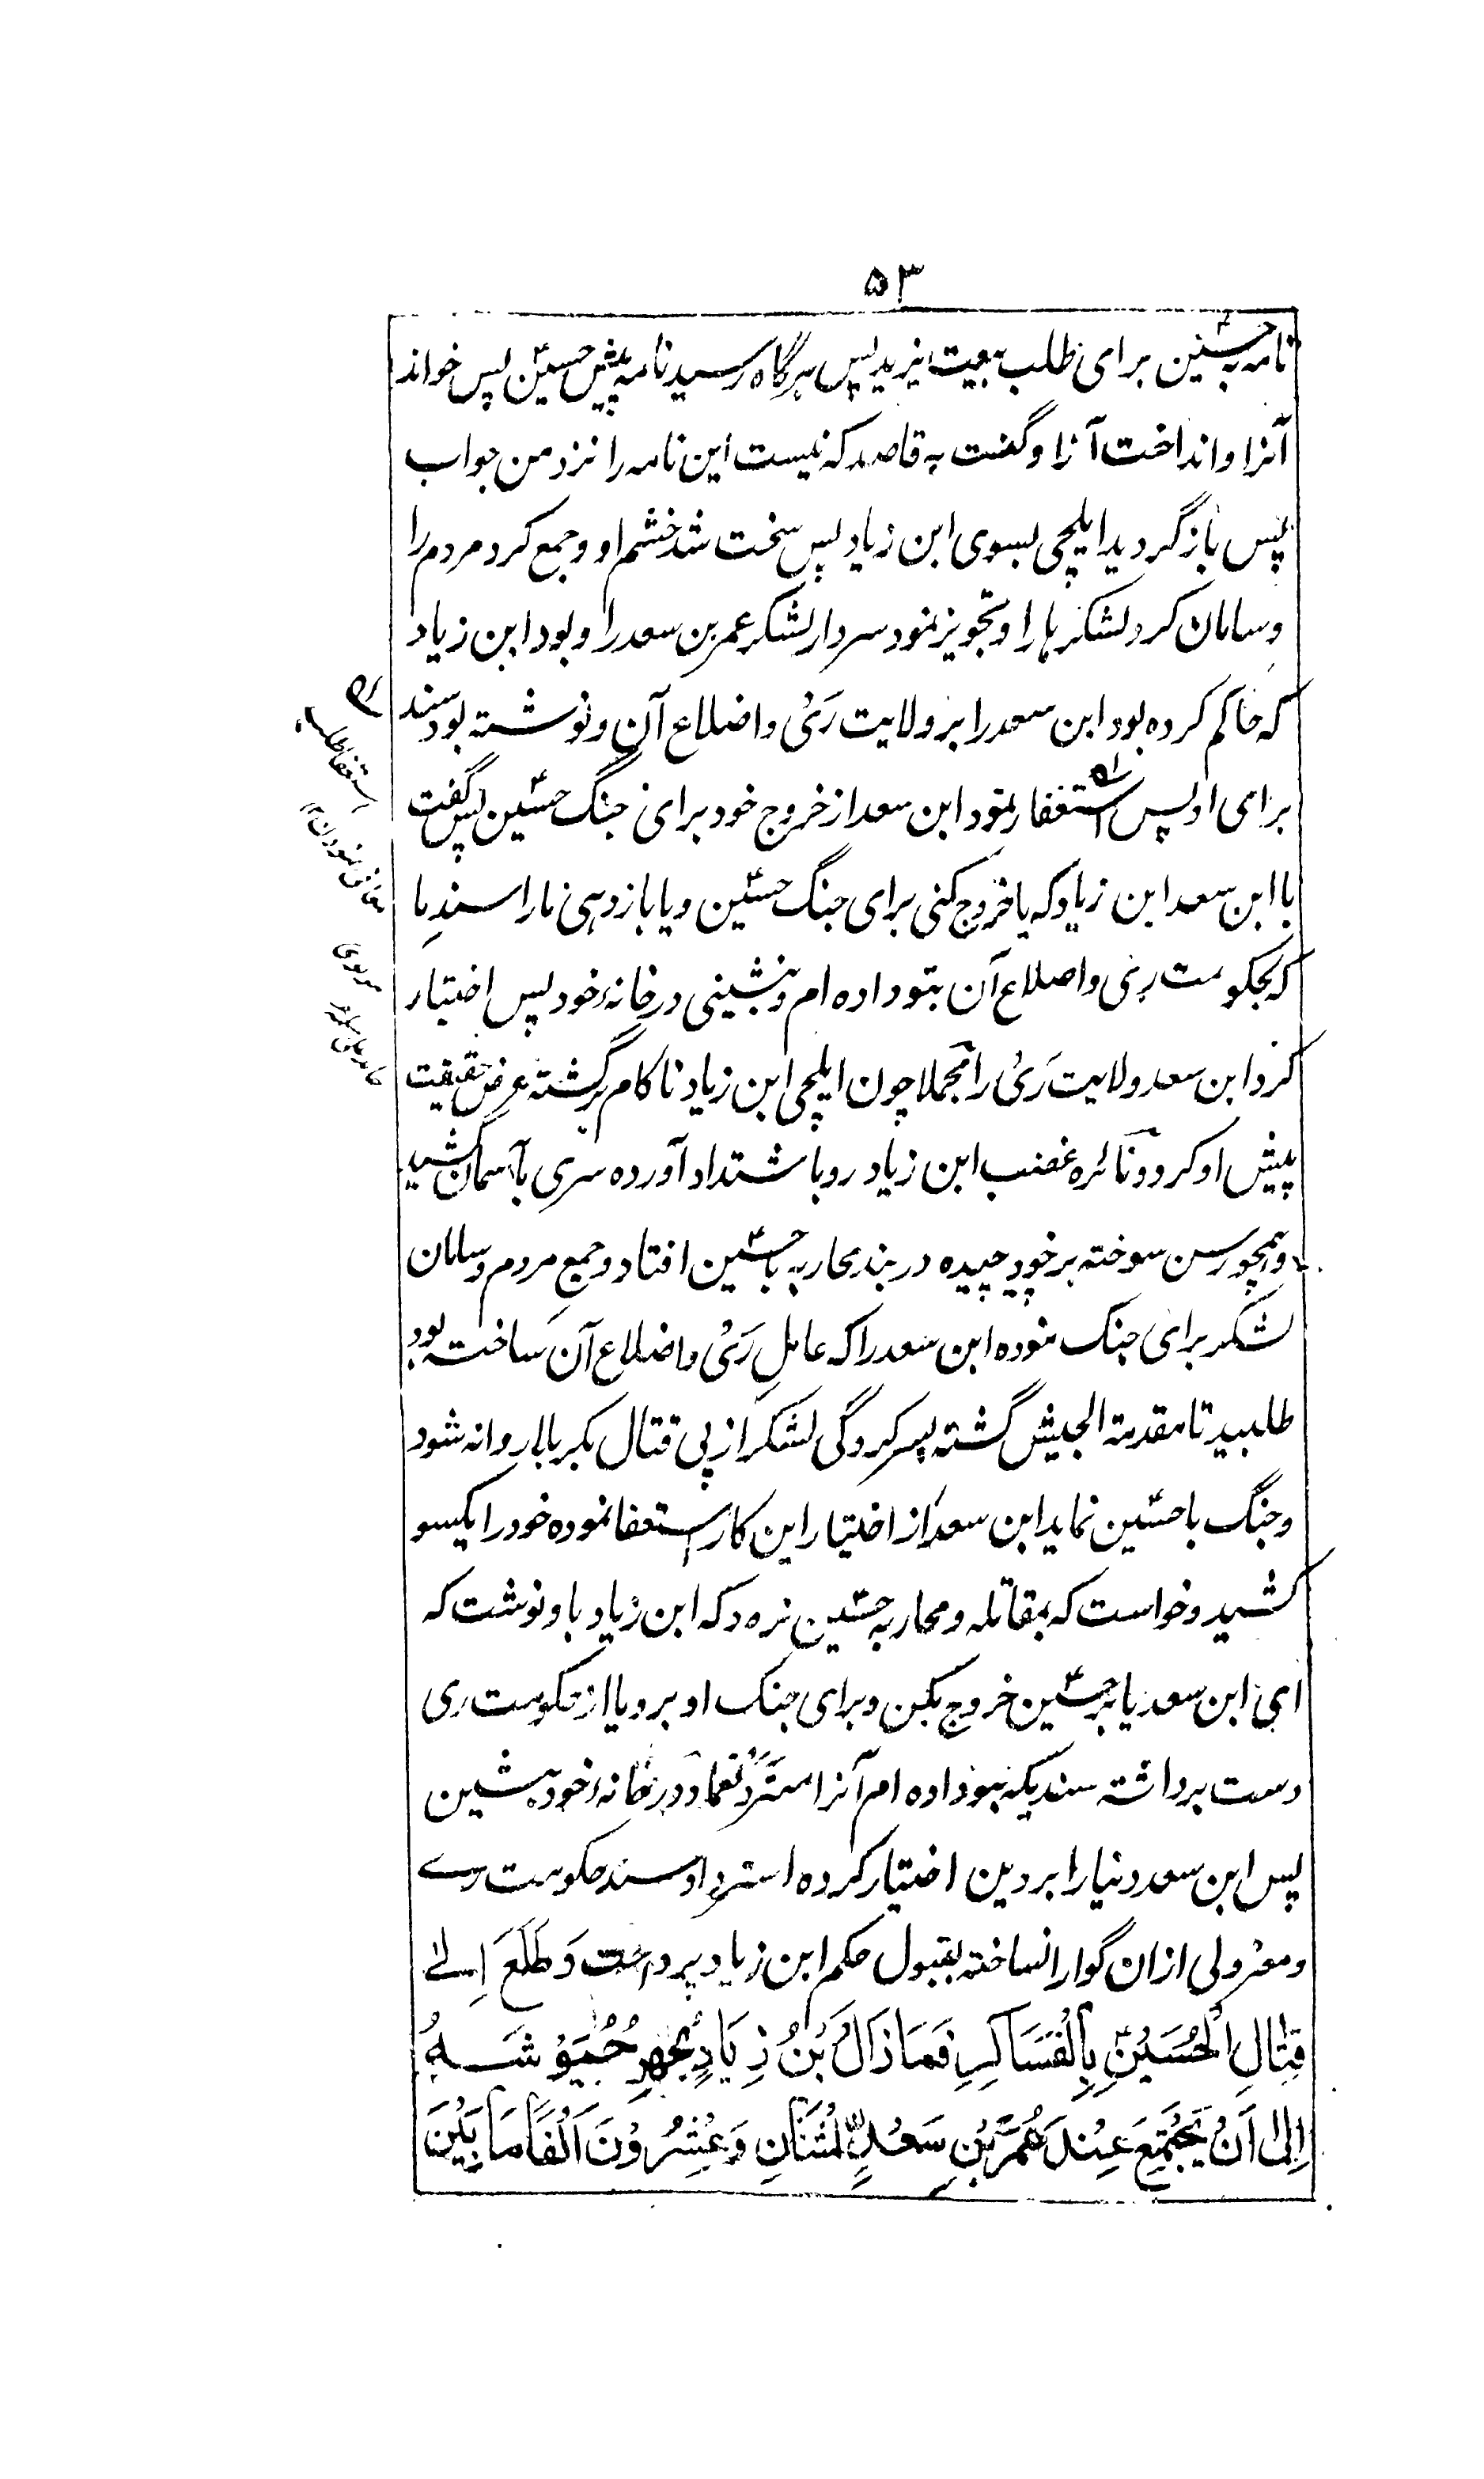 ۵۳
نامه به حسینؑ برای طلب بیعت یزید پس هرگاه رسید نامه پیش حسینؑ پس خواند
آنرا و انداخت آنرا و گفت به قاصد که نیست این نامه را نزد من جواب
پس باز گردید ایلچی بسوی ابن زیاد پس سخت شد خشم او و جمع کرد مردم را
و سامان کرد لشکرها را و تجویز نمود سردار لشکر عمر بن سعد را و بود ابن زیاد
که حاکم کرده بود ابن سعد را بر ولایت رَیْ و اضلاع آن و نوشته بود سند
برای او پس استغفار نمود ابن سعد از خروج خود برای جنگ حسینؑ پس گفت
با ابن سعد ابن زیاد که یا خروج کنی برای جنگ حسینؑ و یا باز دهی ما را سندِ ما
که بحکومت ری و اضلاع آن بتو داده ام و بنشینی در خانهٔ خود پس اختیار
کرد ابن سعد ولایت رَیْ را مجملا چون ایلچی ابن زیاد ناکام برگشته عرض حقیقت
پیش او کرد و نائره غضب ابن زیاد رو باشتداد آورده سری بآسمان کشید
و همچو رسن سوخته بر خود پیچیده در بند محاربه با حسینؑ افتاد و جمع مردم و سامان
لشکر برای جنگ نموده ابن سعد را که عاملِ رَیْ و اضلاع آن ساخته بود
طلبید تا مقدمة الجیش گشته بسرکردگی لشکر از پی قتال بکربلا روانه شود
و جنگ با حسینؑ نماید ابن سعد از اختیار این کار استعفا نموده خود را یکسو
کشید و خواست که بمقاتله و محاربه حسینؑ نرود که ابن زیاد باو نوشت که
ای ابن سعد یا بر حسینؑ خروج بکن و برای جنگ او برو یا از حکومت ری
دست برداشته سندیکه بتو داده ام آنرا مسترد نما و در خانهٔ خود بنشین
پس ابن سعد دنیا را بر دین اختیار کرده استرداد سند حکومت رے
و معزولی ازان گوارا نساخته بقبول حکم ابن زیاد پرداخت وَطَلَعَ اِلیٰ
قِتَالِ الْحُسَیْنِؑ بِالْعَسَاکِرِ فَمَا زَالَ بْنُ زِیَادٍ یُجَهِّزُ جُیُوْشَهُ
اِلیٰ اَنْ یَجْتَمِعَ عِنْدَ عُمَرَ بْنِ سَعْدٍ اثْنَانِ وَعِشْرُوْنَ اَلْفًا مَا بَیْنَ
استعفا طلب
معافی نمودن ۱۲